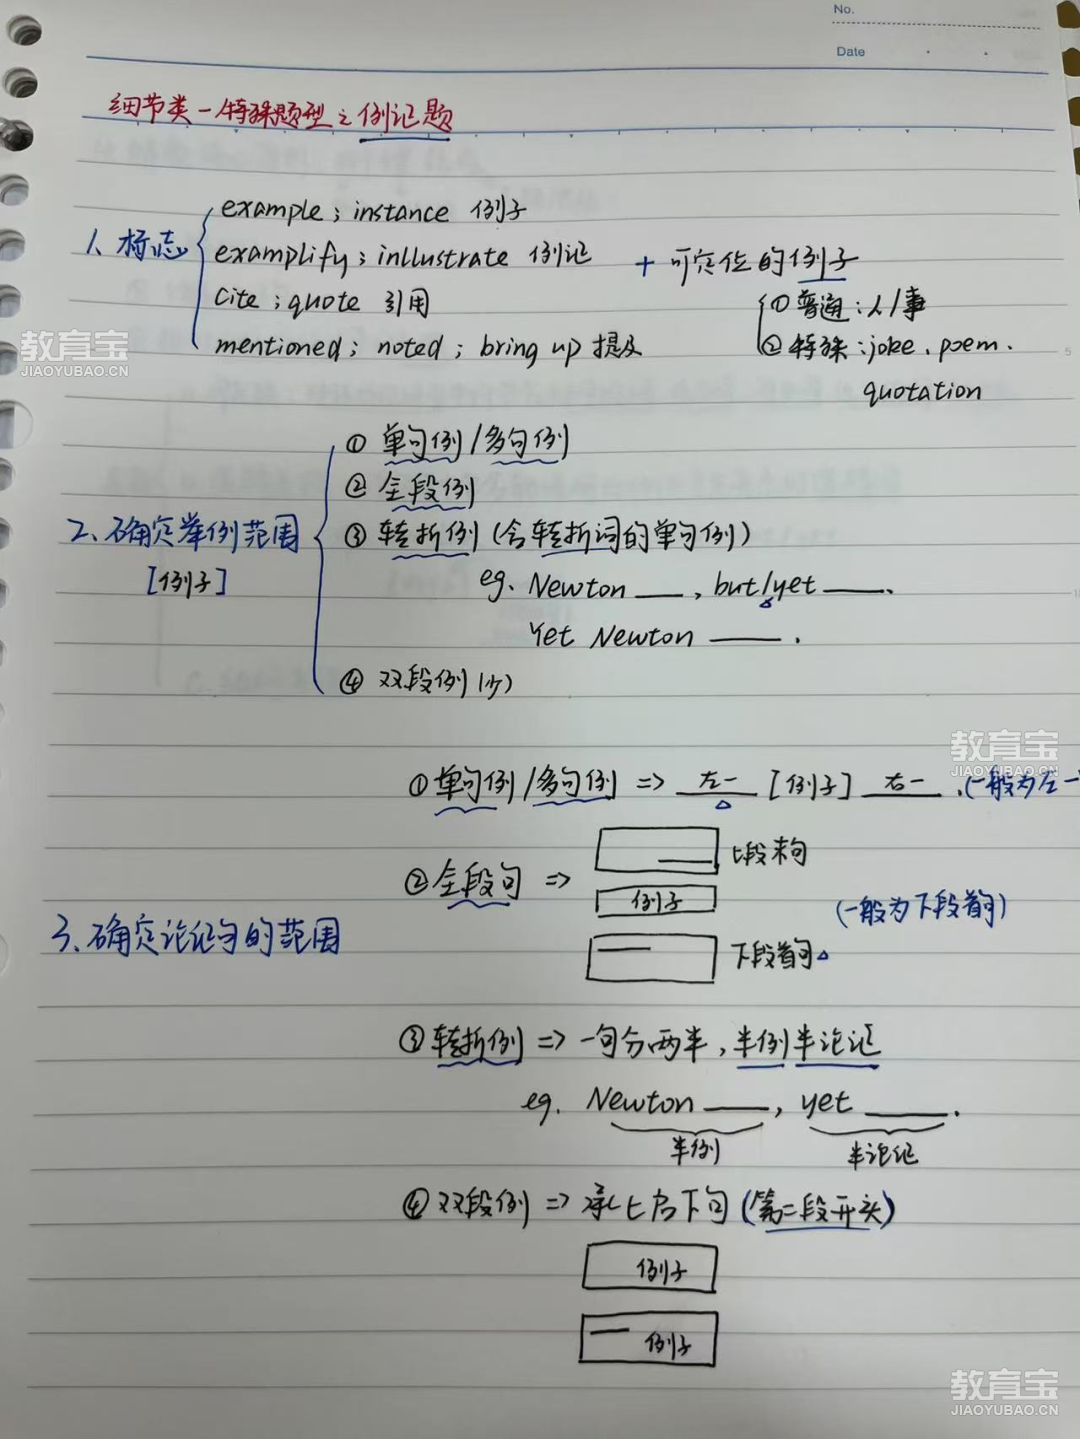 No.
Date
细节类-特殊题型之例证题
1、标志
example; instance 例子
examplify; inllustrate 例证
cite; quote 引用
mentioned; noted; bring up 提及
+ 可定位的例子
① 普通:人/事
② 特殊:joke. poem.
quotation
2、确定举例范围
[例子]
① 单句例/多句例
② 全段例
③ 转折例(含转折词的单句例)
eg. Newton ___, but/yet ___.
Yet Newton ___.
④ 双段例(少)
3、确定论证句的范围
① 单句例/多句例 => 左一 [例子] 右一.(一般为左一
② 全段句 =>
上段末句
例子
下段首句
(一般为下段首句)
③ 转折例 => 一句分两半,半例半论证
eg. Newton ___, yet ___.
半例
半论证
④ 双段例 => 承上启下句(第二段开头)
例子
例子
教育宝
JIAOYUBAO.CN
教育宝
JIAOYUBAO.CN
教育宝
JIAOYUBAO.CN